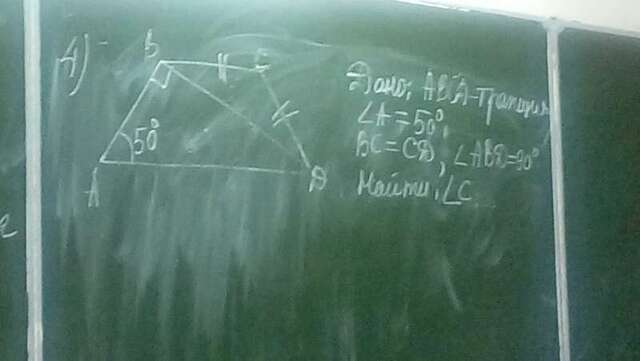 4)
B
C
50°
A
D
Дано: ABCD-трапеция
∠A=50°,
BC=CD, ∠ABD=90°
Найти: ∠C